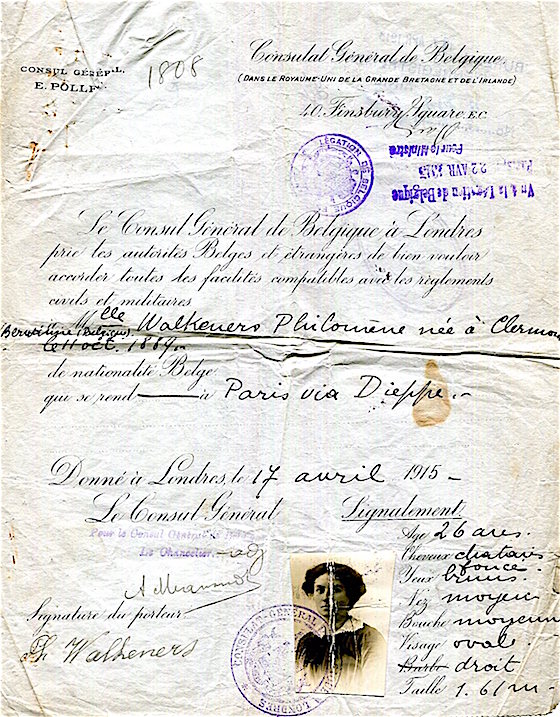 CONSUL GÉNÉRAL
E. POLLET
1808
Consulat Général de Belgique
(DANS LE ROYAUME-UNI DE LA GRANDE BRETAGNE ET DE L'IRLANDE)
40, Finsbury Square, E.C.
LÉGATION DE BELGIQUE
Vu à la Légation de Belgique
22 AVR 1915
Pour le Ministre
Le Consul Général de Belgique à Londres
prie les autorités Belges et étrangères de bien vouloir
accorder toutes les facilités compatibles avec les règlements
civils et militaires
à Melle Walkeners Philomène née à Clermont
(Belgique) le 11 oct. 1889.-
de nationalité Belge
qui se rend — à Paris via Dieppe.-
Donné à Londres, le 17 avril 1915 -
Le Consul Général
Pour le Consul Général de
Le Chancelier,
Signature du porteur
Ph Walkeners
CONSULAT-GÉNÉRAL
LONDRES
Signalement
Age 26 ans.
Cheveux chatains
foncé
Yeux bruns.
Nez moyen
Bouche moyenne
Visage oval.
Barbe droit
Taille 1.61 m.